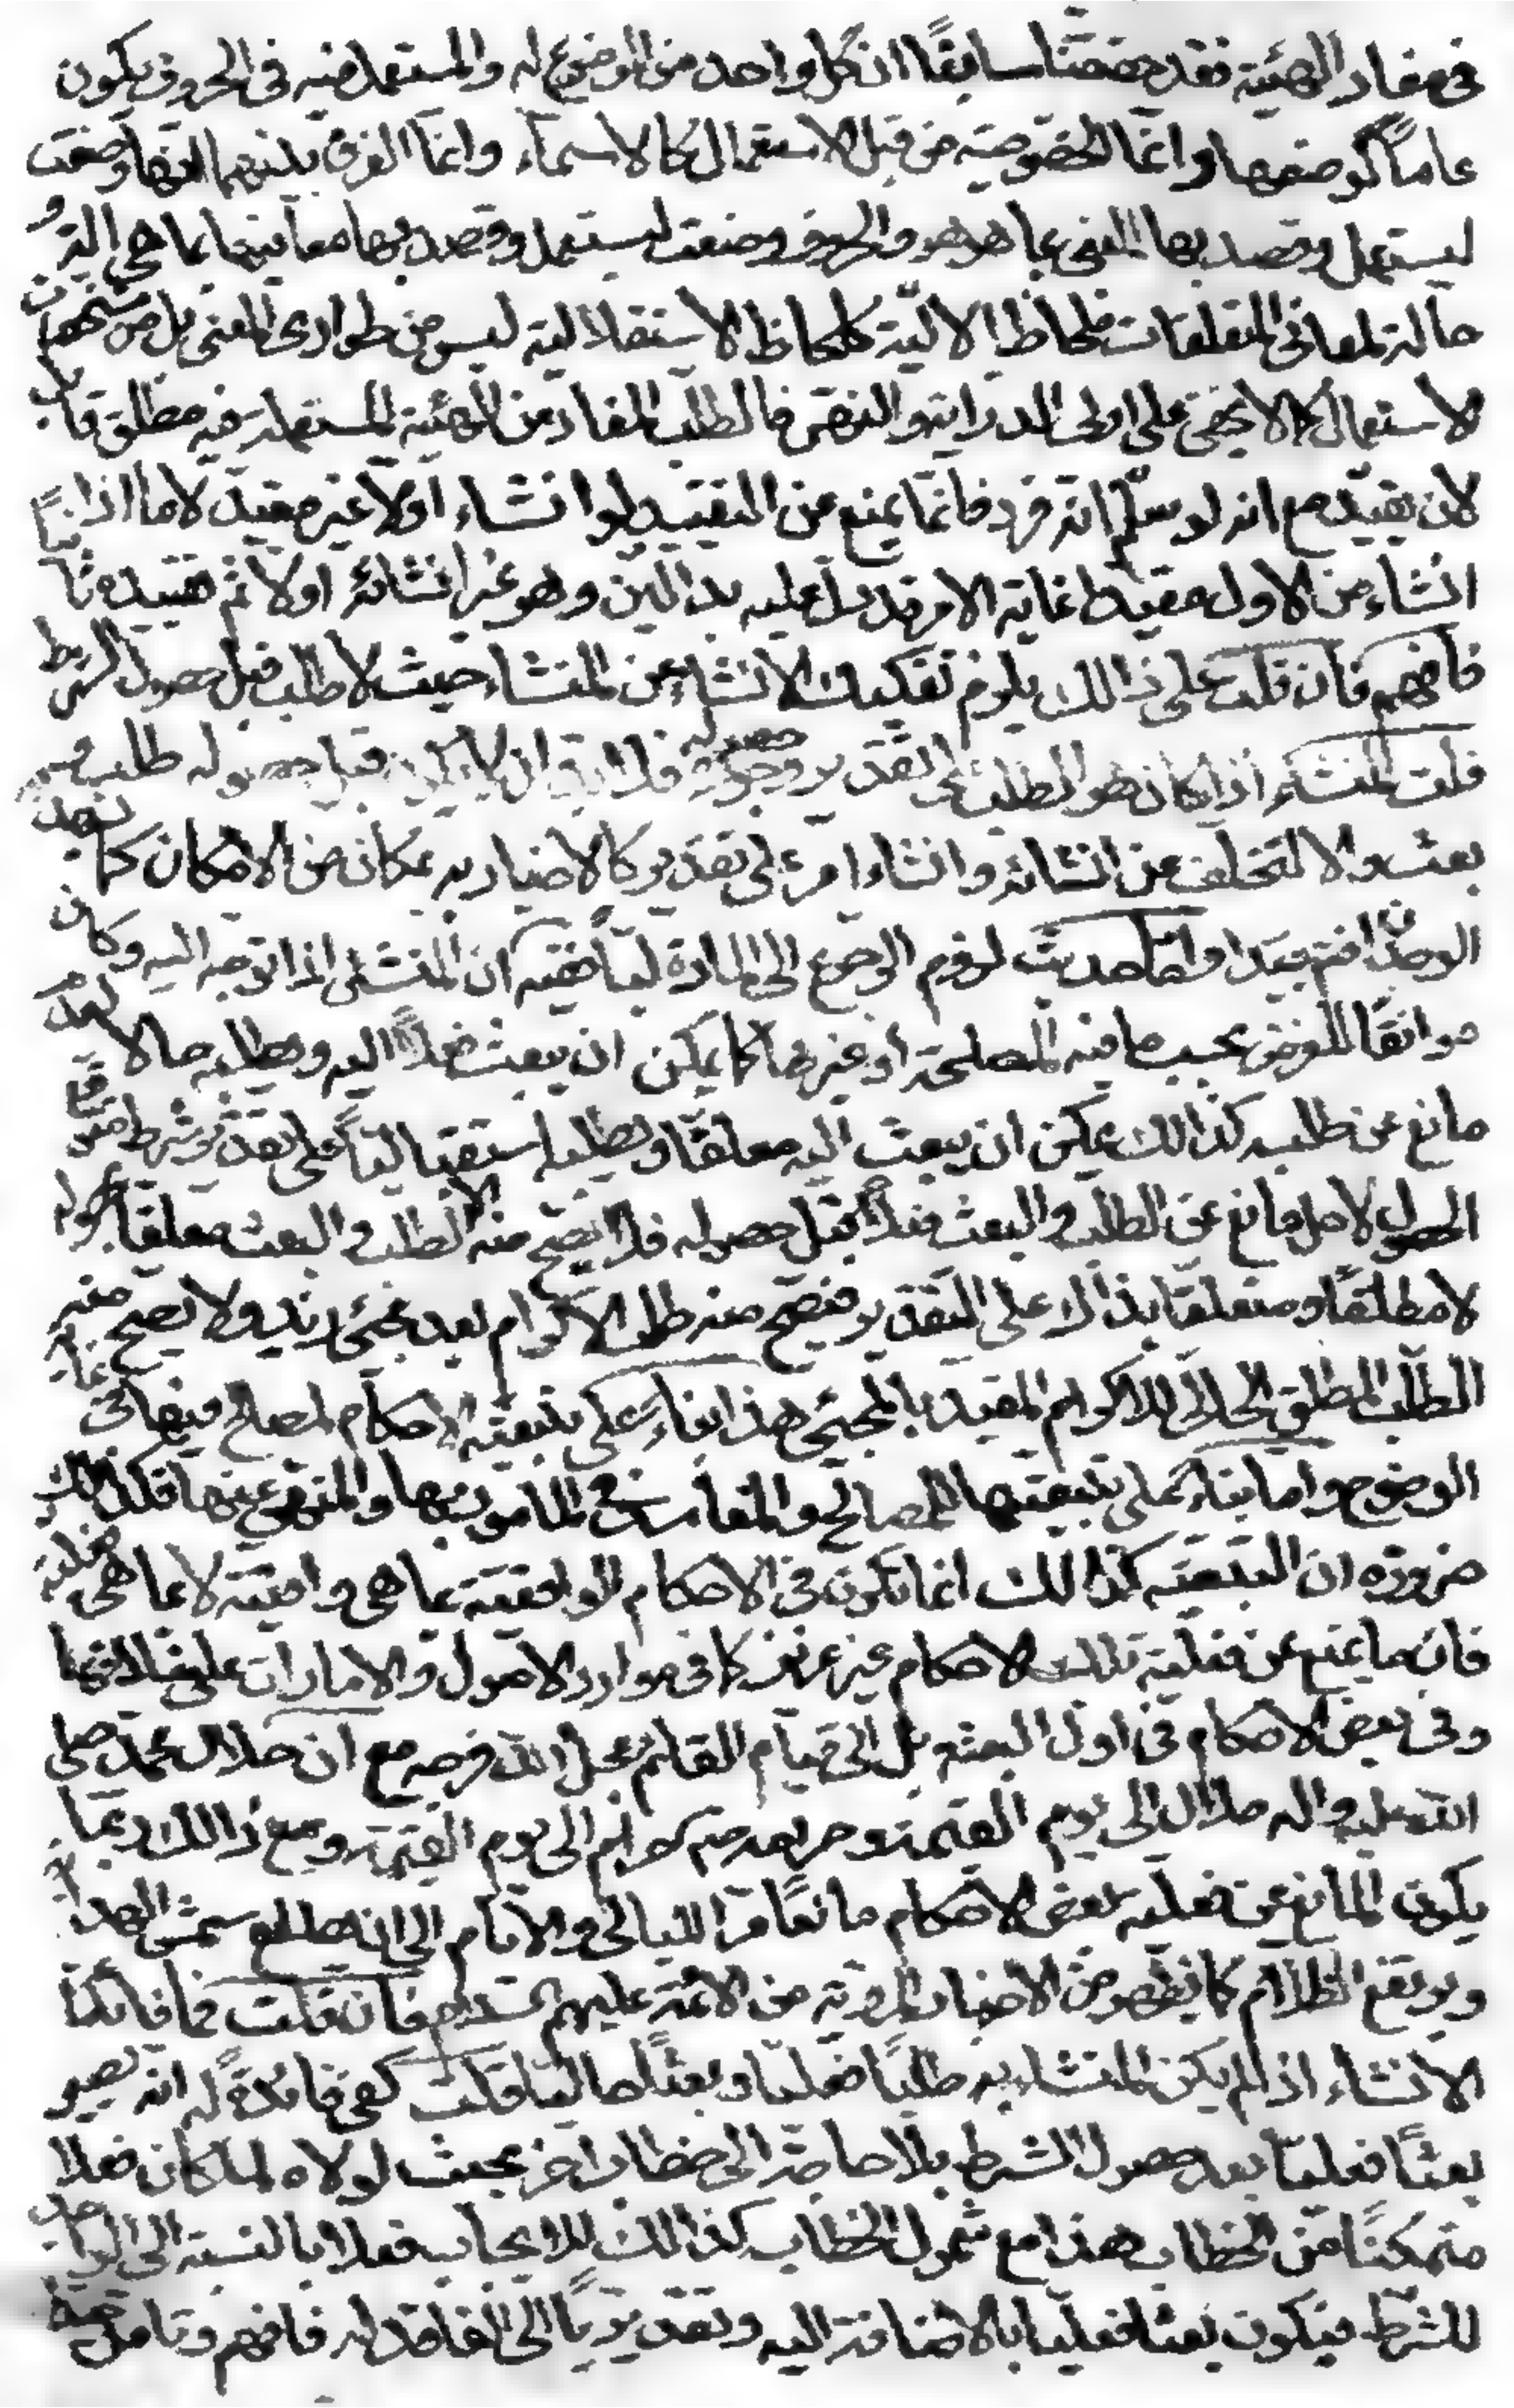 في مفاد الهيئة فقد حققنا سابقا ان كل واحد من الموضوع له والمستعمل فيه في الحروف يكون
عاماً كوضعها وانما الخصوصية من قبل الاستعمال كالاسماء وانما الفرق بينهما انها وضعت
ليستعمل وقصد بها المعنى بما هو هو والحروف وضعت ليستعمل وقصد بها معانيها بما هي الة و
حالة لمعاني المتعلقات فلحاظ الالية كلحاظ الاستقلالية ليس من طوارى المعنى بل من مشخصات
الاستعمال كما لا يخفى على اولى الدراية والنهى فالطلب المفاد من الهيئة المستعملة فيه مطلق قابل
لان يقيد مع انه لو سلم انه فرد فانما يمنع عن التقييد لو انشاء اولا غير مقيد لا ما اذا
انشاء من الاول مقيدا غاية الامر قد دل عليه بدالين وهو غير انشائه اولا ثم تقييده ثانياً
فافهم فان قلت على ذالك يلزم تفكيك الانشاء عن المنشاء حيث لا طلب قبل حصول الشرط
قلت المنشاء اذا كان هو الطلب على تقدير حصوله فلا بد ان لا يكون قبل حصوله طلب و
بعث والا لتخلف عن انشائه وانشاء امر على تقدير كالاخبار به بمكان من الامكان كما يشهد به
الوجدان فتامل جيدا واما حديث لزوم الرجوع الى المادة لبا ففيه ان الشئ اذا توجه اليه وكان
موافقا للغرض بحسب ما فيه المصلحة او غيرها كما يمكن ان يبعث فعلاً اليه ويطلبه حالا لعدم
مانع عن طلبه كذالك يمكن ان يبعث اليه معلقا ويطلبه استقبالياً على تقدير شرط متوقع
الحصول لاجل مانع عن الطلب والبعث فعلاً قبل حصوله فلا يصح منه الا الطلب والبعث معلقا بحصوله
لا مطلقا ومتعلقا بذاك على التقدير فيصح منه طلب الاكرام بعد مجئ زيد ولا يصح منه
الطلب المطلق الحالى للاكرام المقيد بالمجئ هذا بناء على تبعية الاحكام لمصالح فيها في غاية
الوضوح واما بناء على تبعيتها للمصالح والمفاسد في المامور بها والمنهى عنها فكذالك
ضرورة ان التبعية كذالك انما تكون في الاحكام الواقعية بما هى واقعية لا بما هى فعلية
فان ما يمنع عن فعلية تلك الاحكام غير عزيز كما في موارد الاصول والامارات على خلافها
وفي بعض الاحكام في اول البعثة بل الى قيام القائم عجل الله فرجه مع ان حلال محمد صلى
الله عليه واله حلال الى يوم القيمة وحرامه حرام الى يوم القيمة ومع ذالك ربما
يكون المانع عن فعلية بعض الاحكام مانعا مر الليالى والايام الى ان يطلع شمس الهداية
ويرتفع الظلام كما يظهر من الاخبار المروية من الائمة عليهم السلام فان قلت فما فائدة
الانشاء اذا لم يكن المنشاء به طلباً فعليا وبعثاً حاليا قلت كفى فائدة له انه يصير
بعثاً فعليا بعد حصول الشرط بلا حاجة الى خطاب اخر بحيث لولاه لما كان فعلا
متمكناً من الخطاب هذا مع شمول الخطاب كذالك للايجاب فعلا بالنسبة الى الواجد
للشرط فيكون بعثا فعليا بالاضافة اليه وتقديرياً الى الفاقد له فافهم وتامل جيدا